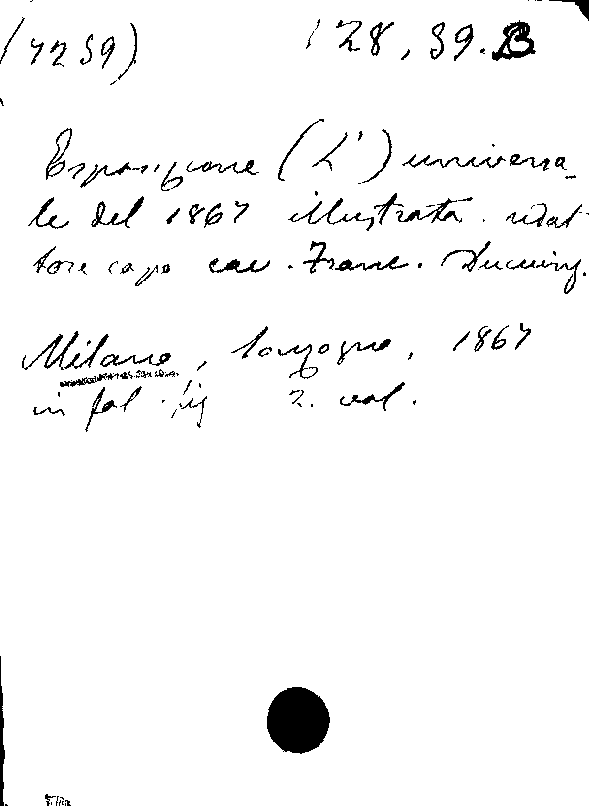 (7239) 128, 39. B
Esposizione (L') universa-
le del 1867 illustrata. redat
tore capo cav. Franc. Ducuing.
Milano, Sonzogno, 1867
in fol. fig 2. vol.